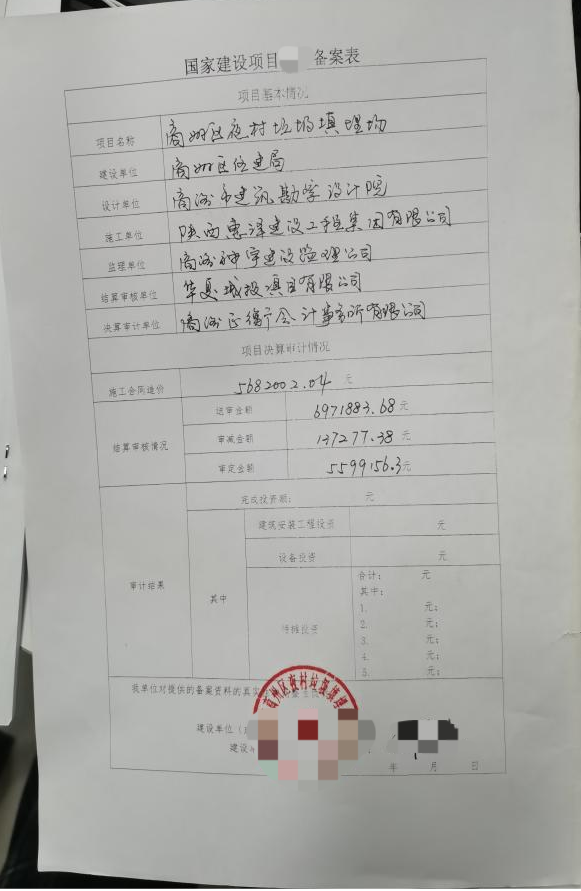 国家建设项目 备案表
项目基本情况
项目名称 商州区夜村垃圾填埋场
建设单位 商州区住建局
设计单位 商洛市建筑勘察设计院
施工单位 陕西惠泽建设工程集团有限公司
监理单位 商洛 宇建设监理公司
结算审核单位 华夏城投项目有限公司
决算审计单位 商洛正衡 会计事务所有限公司
项目决算审计情况
施工合同造价 5682002.04 元
结算审核情况
送审金额 6971883.68元
审减金额 137277.38元
审定金额 5599156.3元
审计结果
完成投资额: 元
其中
建筑安装工程投资 元
设备投资 元
待摊投资
合计: 元
其中:
1. 元;
2. 元;
3. 元;
4. 元;
5. 元;
我单位对提供的备案资料的真实
商州区夜村垃圾填埋
建设单位(
建设
年 月 日